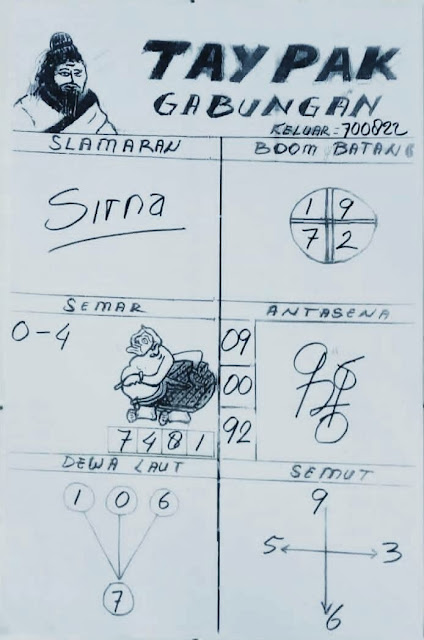 TAYPAK
GABUNGAN
KELUAR: 700822
SLAMARAN
Sirna
BOOM BATANG
1 9
7 2
SEMAR
0-4
7 4 8 1
09
00
92
ANTASENA
DEWA LAUT
1 0 6
7
SEMUT
9
5 3
6